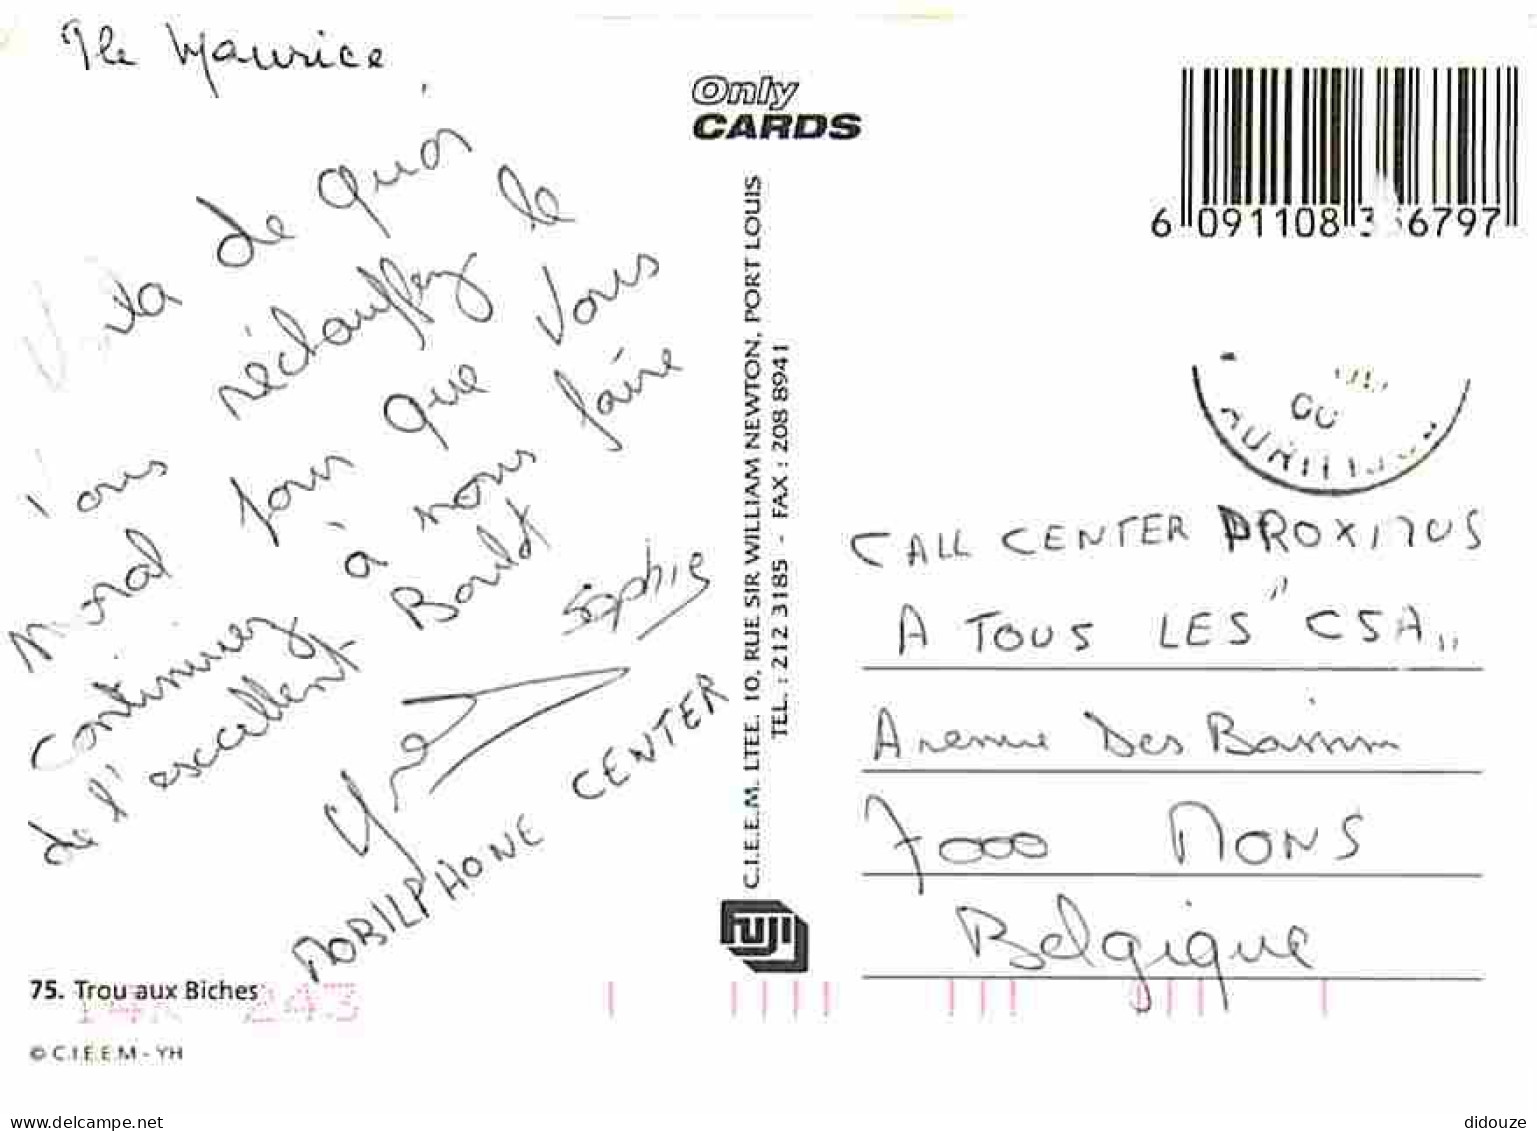 Ile Maurice,
Voila de quoi
réchauffez le
moral pour que vous
Vous
continuiez à nous faire
de l'excellent Boulot
Sophie
MOBILPHONE CENTER
75. Trou aux Biches
© C.I.E.E.M - YH
Only
CARDS
C.I.E.E.M. LTEE. 10, RUE SIR WILLIAM NEWTON, PORT LOUIS
TEL. : 212 3185 - FAX : 208 8941
FUJI
6 091108 3 6797
CALL CENTER PROXIMUS
A TOUS LES "CSA"
Avenue Des Bassins
7000 MONS
Belgique
delcampe.net
didouze